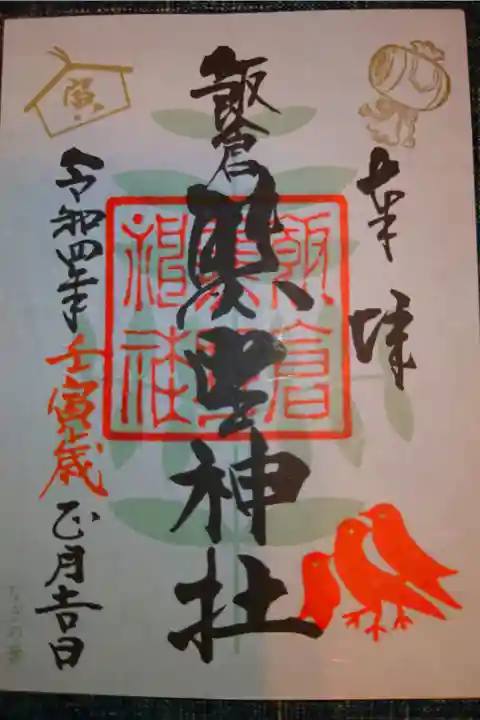 奉拝
飯倉
熊野神社
飯倉熊野神社
寅
令和四年壬寅歳正月吉日
なぎの葉